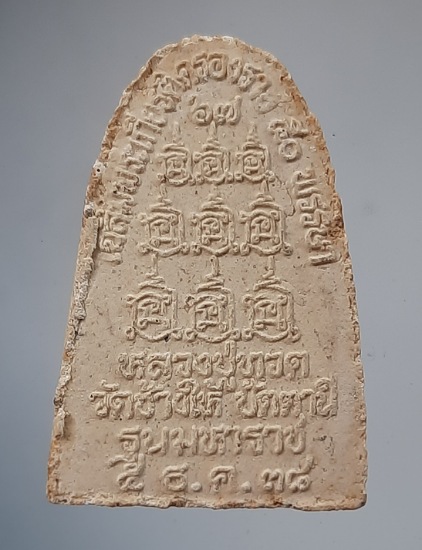 เฉลิมพระเกียรติครองราช ๕๐ พรรษา
๖๗
หลวงปู่ทวด
วัดช้างให้ ปัตตานี
รุ่นมหาราช
๕ ธ.ค.๓๘